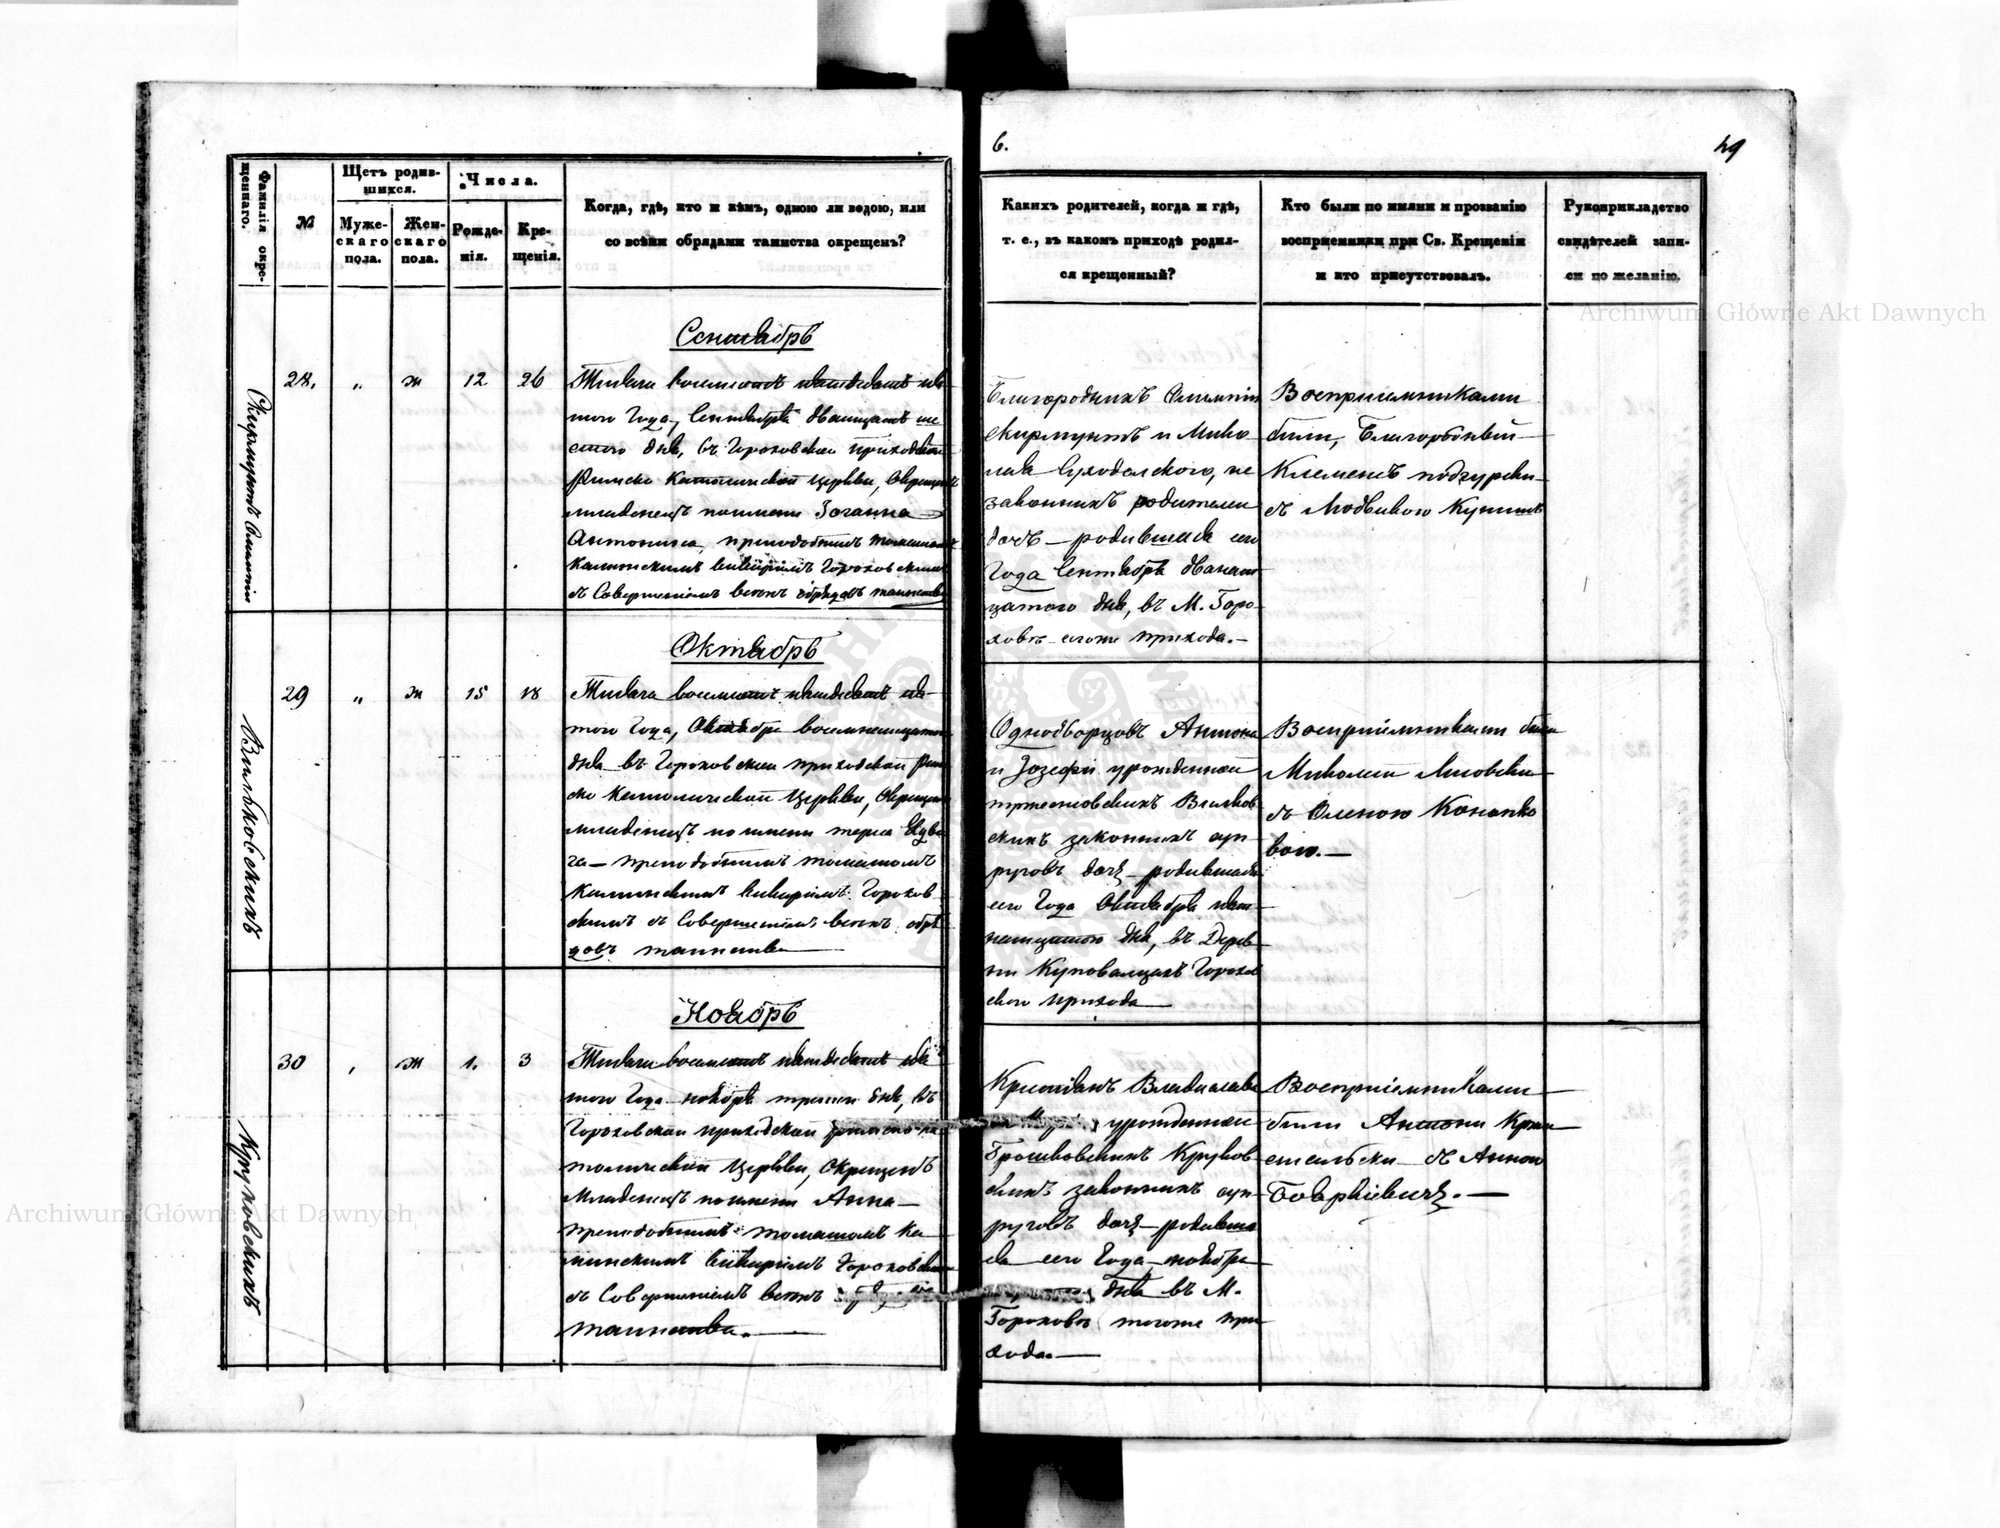 6.
49
Фамилія окре-
щеннаго.
№
Щетъ родив-
шихся.
Муже-
скаго
пола.
Жен-
скаго
пола.
Числа.
Рожде-
нія.
Кре-
щенія.
Когда, гдѣ, кто и кѣмъ, одною ли водою, или
со всѣми обрядами таинства окрещенъ?
Какихъ родителей, когда и гдѣ,
т. е., въ какомъ приходѣ родил-
ся крещенный?
Кто были по имени и прозванію
восприемники при Св. Крещеніи
и кто присутствовалъ.
Рукоприкладство
свидѣтелей запи-
си по желанію.
Archiwum Główne Akt Dawnych
Сентябрь
28. „ ж 12 26
Тысяча восемьсотъ пятьдесятъ пя-
того Года, Сентября двадцать ше
стого дня, въ Гороховской приходской
Римско Католической Церкви, Окрещенъ
младенецъ по имени Іоганна
Антонина, преподобнымъ
Каминскимъ викаріемъ Гороховскимъ
съ Совершеніемъ всехъ обрядовъ таинства
Благородныхъ
Скирмунтъ и Мико
лая Суходолскаго, не
законныхъ родителей
дочь — родившаяся сего
Года Сентября двенад
цатого дня, въ М. Горо-
ховѣ сегоже прихода. —
Восприемниками
были, Благородный
Клеменсъ
съ Людвикою
Октябрь
29 „ ж 15 18
Тысяча восемьсотъ пятьдесятъ пя-
того Года, Октября восемнадцатого
дня въ Гороховской приходской Рим
ско Католической Церкви, Окрещенъ
младенецъ по имени Тереса Ядви
га — преподобнымъ
Каминскимъ викаріемъ Горохов
скимъ съ Совершеніемъ всехъ обря
довъ таинства
Вильковскихъ
Однодворцовъ Антона
и Іозефы урожденной
Вилков
скихъ законныхъ суп
руговъ дочь — родившаяся
сего Года Октября пят
надцатого дня, въ Дерев
ни Куповалцахъ Горохов
ского прихода
Восприемниками были
Миколай Лисовски
съ Оленою Конопко
вою. —
Ноябрь
30 „ ж 1. 3
Тысяча восемьсотъ пятьдесятъ пя
того Года ноября третьи дня, въ
Гороховской приходской римско-ка
толической Церкви, Окрещенъ
Младенецъ по имени Анна —
преподобнымъ Ка
минскимъ викаріемъ Гороховскимъ
съ Совершеніемъ всехъ
таинства. —
Круковскихъ
Крестянъ Владислава
урожденной
Круков
скихъ законныхъ суп
руговъ дочь — родивша
яся сего Года ноября
дня въ М.
Гороховѣ тогоже при
хода. —
Восприемниками
были Антони
съ Анною
Archiwum Główne Akt Dawnych